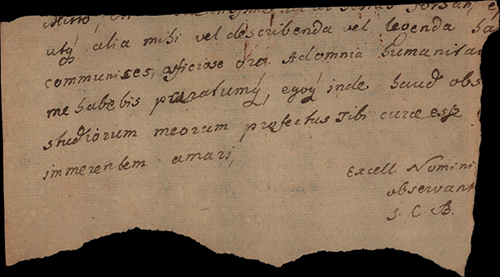 Mitto, 
utq; alia mihi vel describenda vel legenda ha
communices, officiose oro. Ad omnia humanitat
me habebis paratumq;, egoq; inde haud obs
studiorum meorum profectus Tibi curæ esse
immerentem amari,
Excell Nomini
observant
S. C. B.